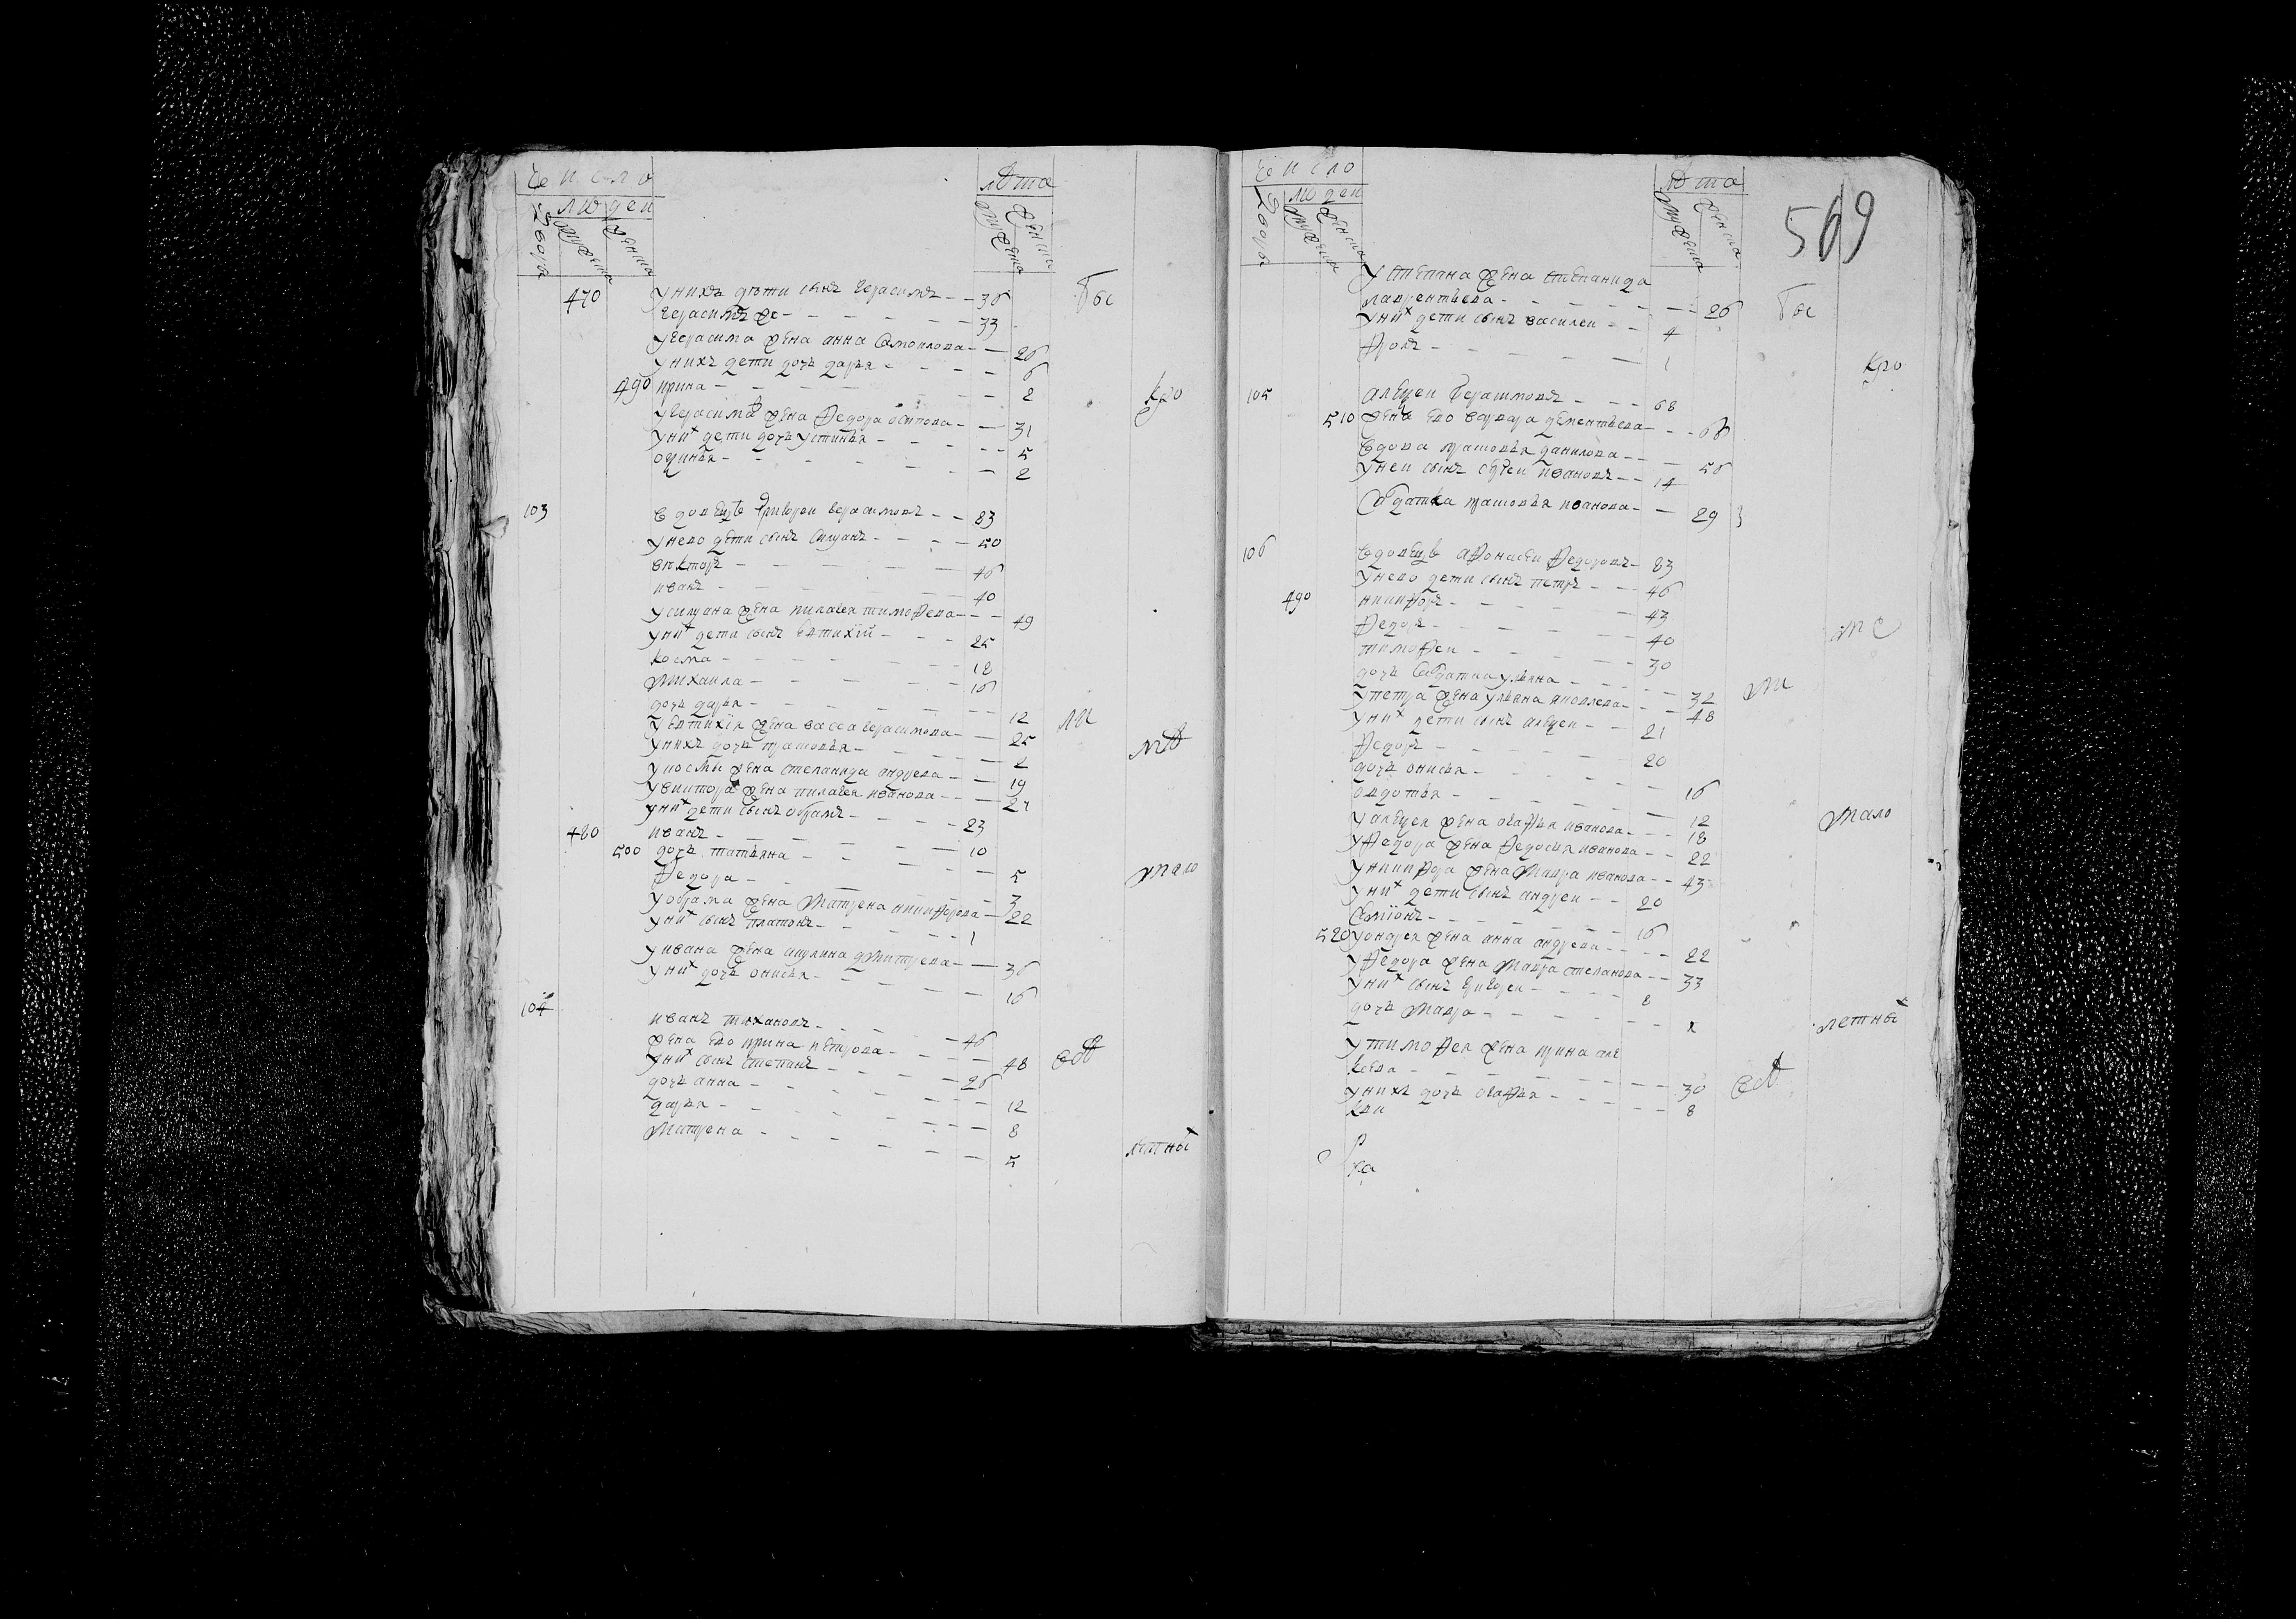 Число
Лета
людей
дворы
мужеска
женска
мужеска
женска
470 У нихъ дети сынъ Герасимъ 36 бы
Герасимъ же 33
У Герасима жена Анна Самоилова 26
У нихъ дети дочь Дарья 6
490 Ирина 2 Кро
У Герасима жена Федора Осипова 31
У них дети дочь Устинья 5
2
103 Вдовецъ Григореи Герасимовъ 83
У него дети сынъ Силуанъ 50
Викторъ 46
Иванъ 40
У Силуана жена Пилагея Тимофеева 49
У них дети сынъ Евтихїй 25
Косма 18
Михаила 16
дочь Дарья 12 ли
У Евтихїя жена Васса Герасимова 25
У нихъ дочь Прасковья 2
У Космы жена Степанида Андреева 19
У Виктора жена Пилагея Иванова
У них дети сынъ Обрамъ 23
480 Иванъ 10
500 дочь Татьяна 5 мало
Федора 3
У Обрама жена Матрена Никифорова 22
У них сынъ Платонъ 1
У Ивана жена Акулина Дмитреева 36
У них дочь Онисья 16
104 Иванъ Тихановъ 46
жена ево Ирина Петрова 48
У них сынъ Степанъ 26
дочь Анна 12
Дарья 8
Матрена 5 летных
569
Число
Лета
людей
дворы
мужеска
женска
мужеска
женска
У Степана жена Степанида
Лаврентьева 26 бы
У них дети сынъ Василеи 4
Фролъ 1 Кро
105 Алексеи Герасимовъ 68
510 жена ево Варвара Дементьева
Вдова Прасковья Данилова 56
У неи сынъ Сергеи Ивановъ 14
Солдатка Прасковья Иванова 29
106 Вдовецъ Афонасеи Федоровъ 83
У него дети сынъ Петръ 46
490 Никифоръ 43
Федоръ 40
Тимофеи 30
дочь Солдатка Ульяна 32
У Петра жена Ульяна Яковлева 48
У них дети сынъ Алексеи 21
Федоръ 20
дочь Онисья 16
Овдотья 12 мало
У Алексея жена Агафья Иванова 18
У Федора жена Федосья Иванова 22
У Никифора жена Мавра Иванова 43
У них дети сынъ Андреи 20
Семїонъ 16
520 У Ондрея жена Анна Андреева 22
У Федора жена Мавра Степанова 33
У них сынъ Григореи 8
дочь Мавра летных
У Тимофея жена Ирина Але
ксеева 30
У нихъ дочь Агафья 8